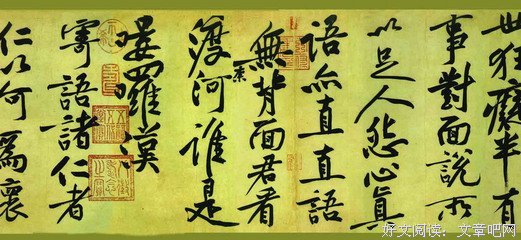 世狂癡半有
事對面說所
以足人怨心真
語亦直直語
無背面君看
渡奈河誰是
嘍羅漢
寄語諸仁者
仁以何為懷
好文阅读:文章吧网